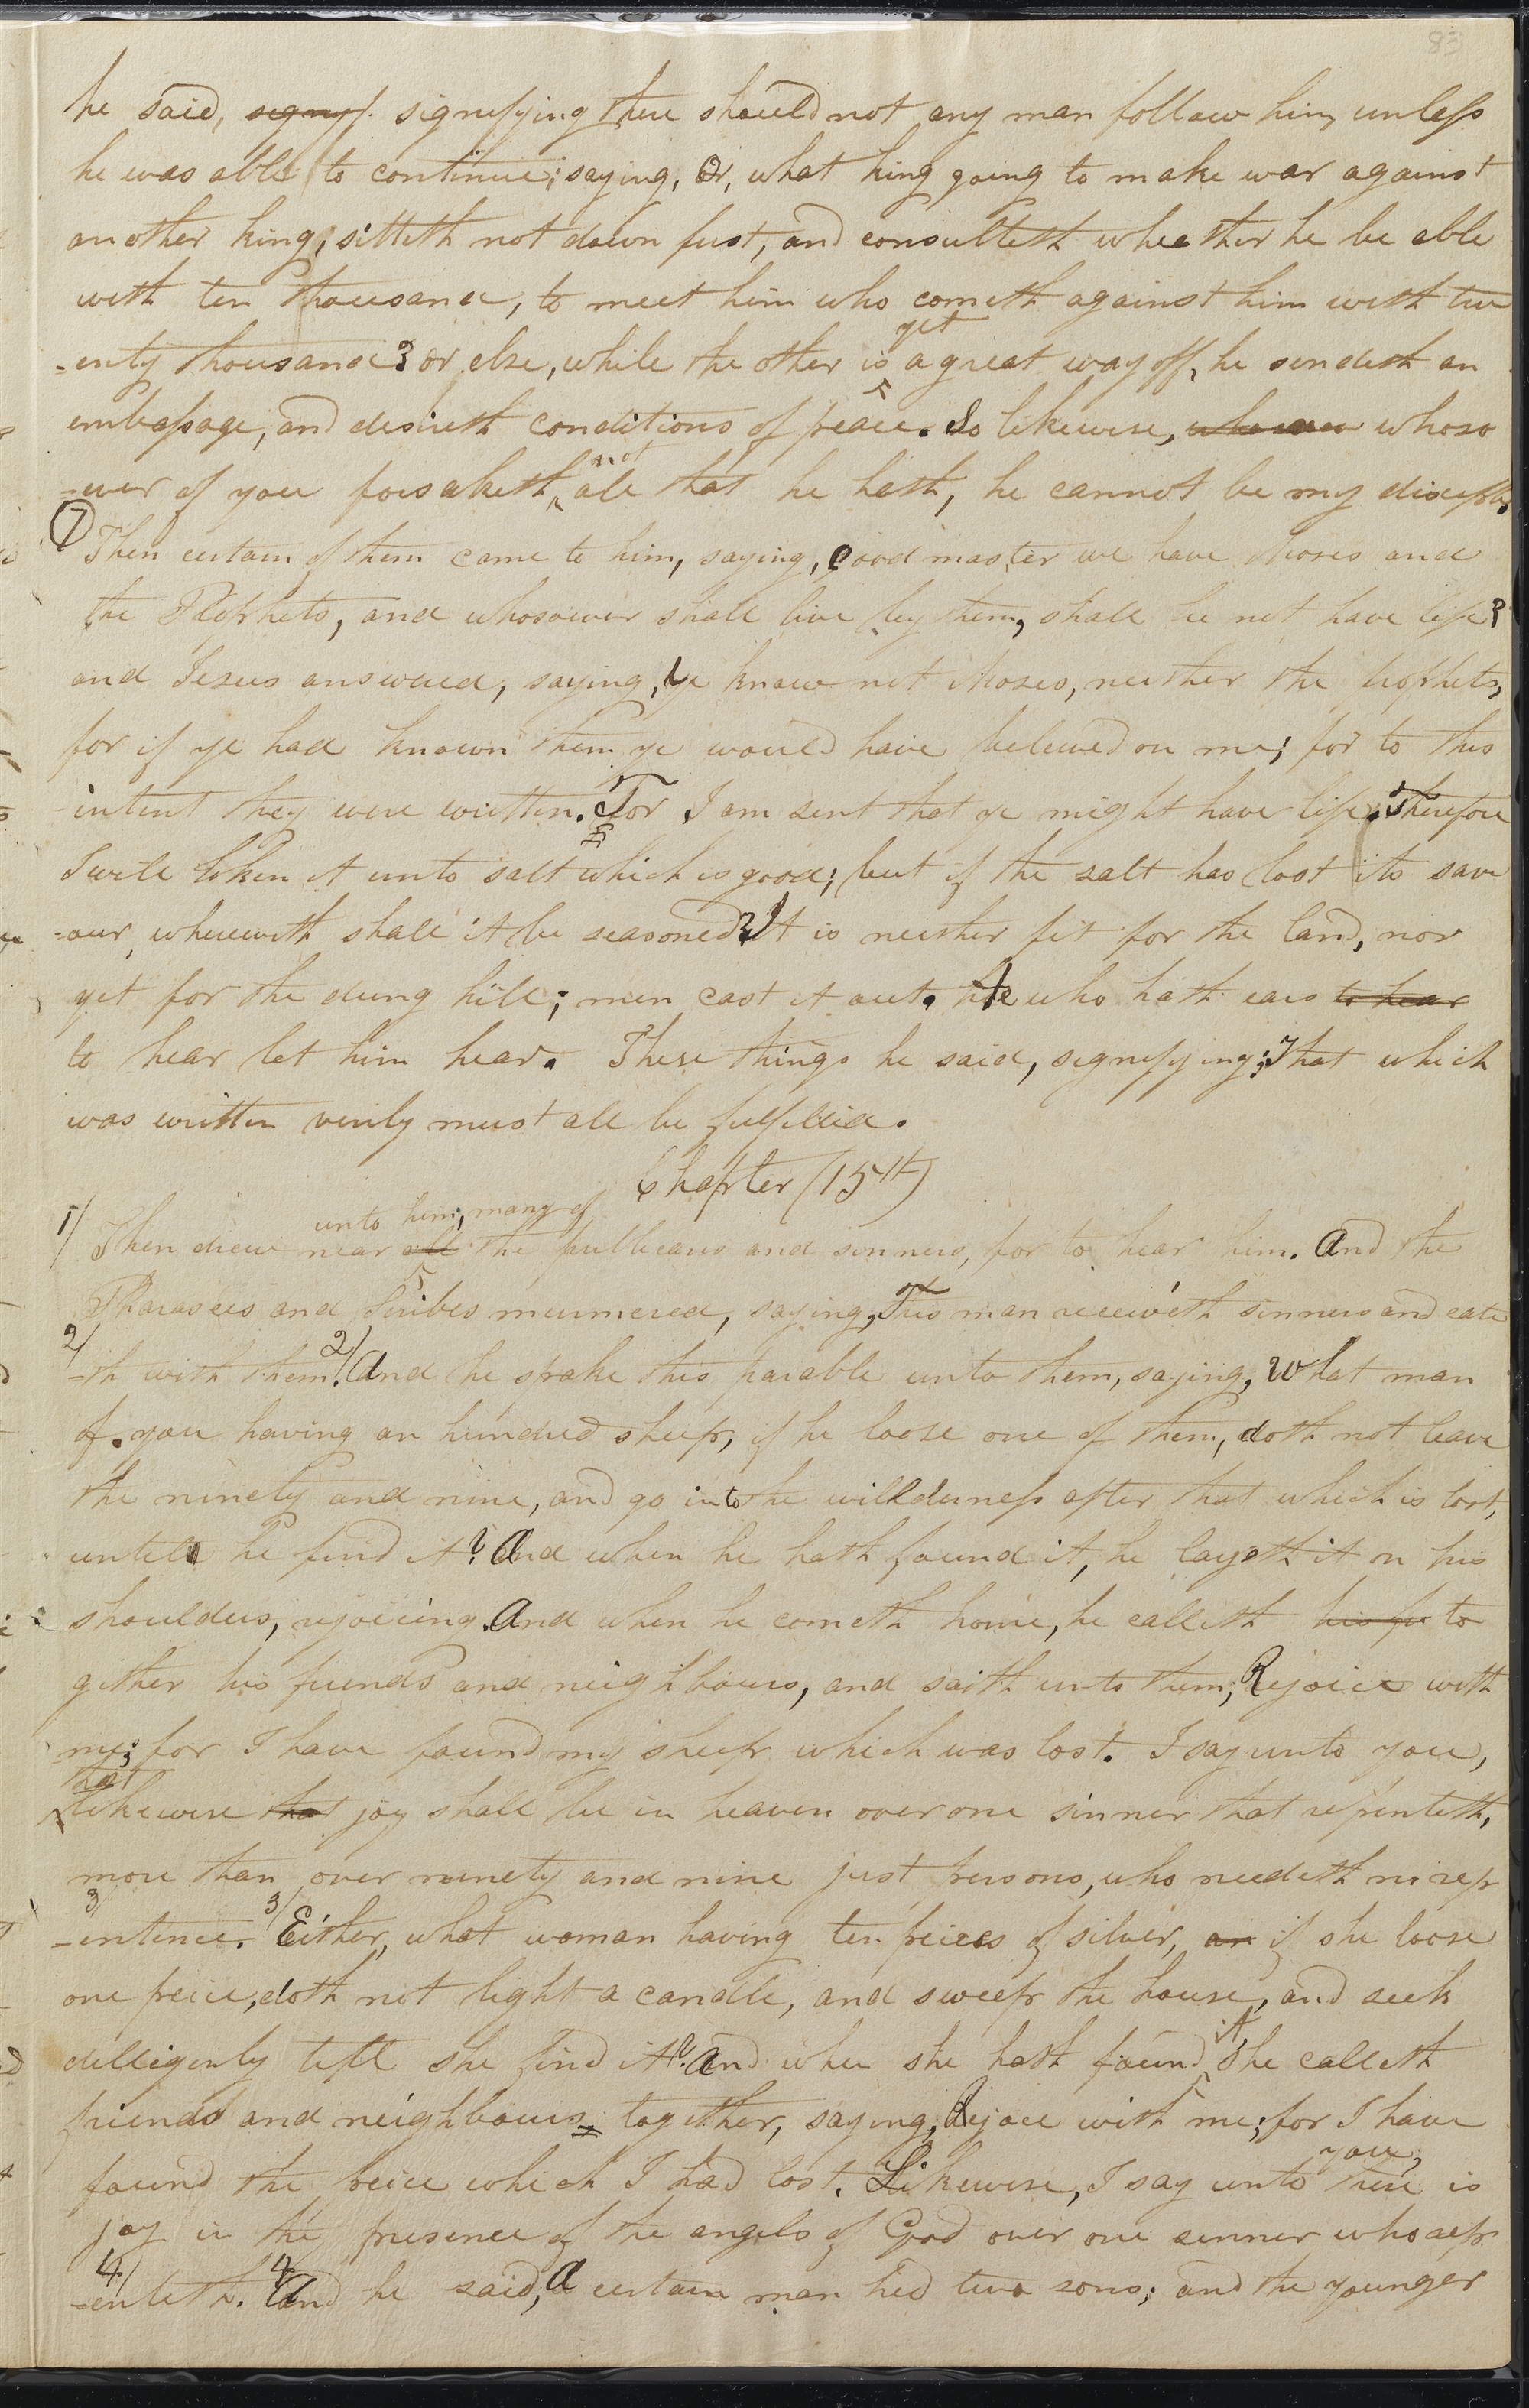 83
he said, signyf. signifying there should not any man follow him, unless
he was able to continue; saying, Or, what king going to make war against
another king, sitteth not down fust, and consulteth wheather he be able
with ten thousand, to meet him who cometh against him with twe
-enty thousand? or else, while the other is yet a great way off, he sendeth an
embassage, and desireth conditions of peace. So likewise, whosoever whoso
-ever of you forsaketh not all that he hath, he cannot be my disciple,
7 Then certain of them came to him, saying, good master we have Moses and
the Prophets, and whosoever shall live by them, shall he not have life?
and Jesus answered, saying, ye know not Moses, neither the prophets,
for if ye had known them ye would have believed on me; for to this
intent they were written. For I am sent that ye might have life. Therefore
I will liken it unto salt which is good; but if the salt has lost its save
-our, wherewith shall it be seasoned? It is neither fit for the land, nor
yet for the dung hill; men cast it out. He who hath ears to hear
to hear let him hear. These things he said, signifying; That which
was written verily must all be fulfilled.
Chapter (15th)
1/ Then drew near unto him, many of all the publicans and sinners, for to hear him. And the
Pharasees and scribes murmered, saying, This man receiveth sinners and eate
2/ -th with them. 2/ And he spake this parable unto them, saying, What man
of you having an hundred sheep, if he loose one of them, doth not leave
the ninety and nine, and go into the willderness after that which is lost,
untill he find it? And when he hath found it, he layeth it on his
shoulders, rejoicing. And when he cometh home, he calleth his fr to
gether his friends and neighbours, and saith unto them, Rejoice with
me; for I have found my sheep which was lost. I say unto you,
that likewise that joy shall be in heaven over one sinner that repenteth,
more than over ninety and nine just persons, who needeth no rep
3/ -entence. 3/ Either, what woman having ten peices of silver, an if she loose
one peice, doth not light a candle, and sweep the house, and seek
dilligently till she find it? And when she hath found it, she calleth
friends and neighbours together, saying, Rejoice with me; for I have
found the peice which I had lost. Likewise, I say unto you, there is
joy in the presence of the angels of God over one sinner who rep
4/ -enteth. 4/ And he said, A certain man had two sons; and the younger